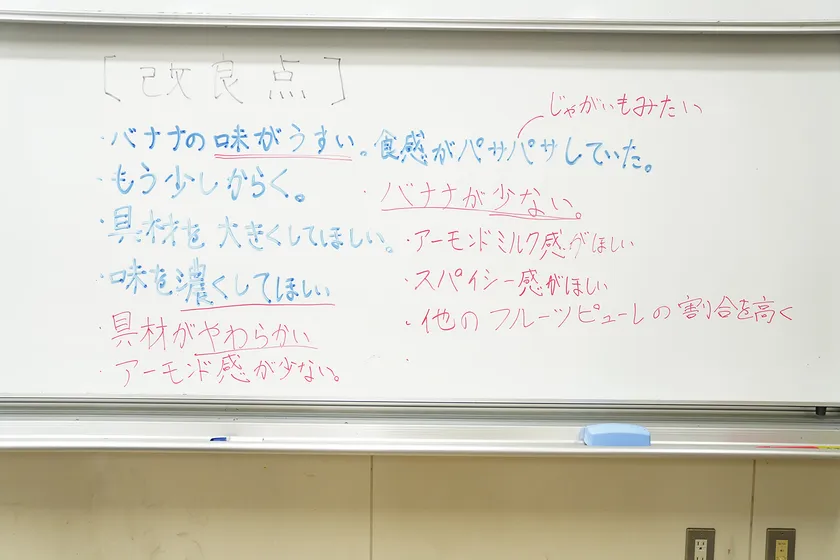 [改良点]
・バナナの味がうすい。食感がパサパサしていた。
じゃがいもみたい
・もう少しからく。
・具材を大きくしてほしい。
・味を濃くしてほしい
・具材がやわらかい
・アーモンド感が少ない。
・バナナが少ない。
・アーモンドミルク感がほしい
・スパイシー感がほしい
・他のフルーツピューレの割合を高く